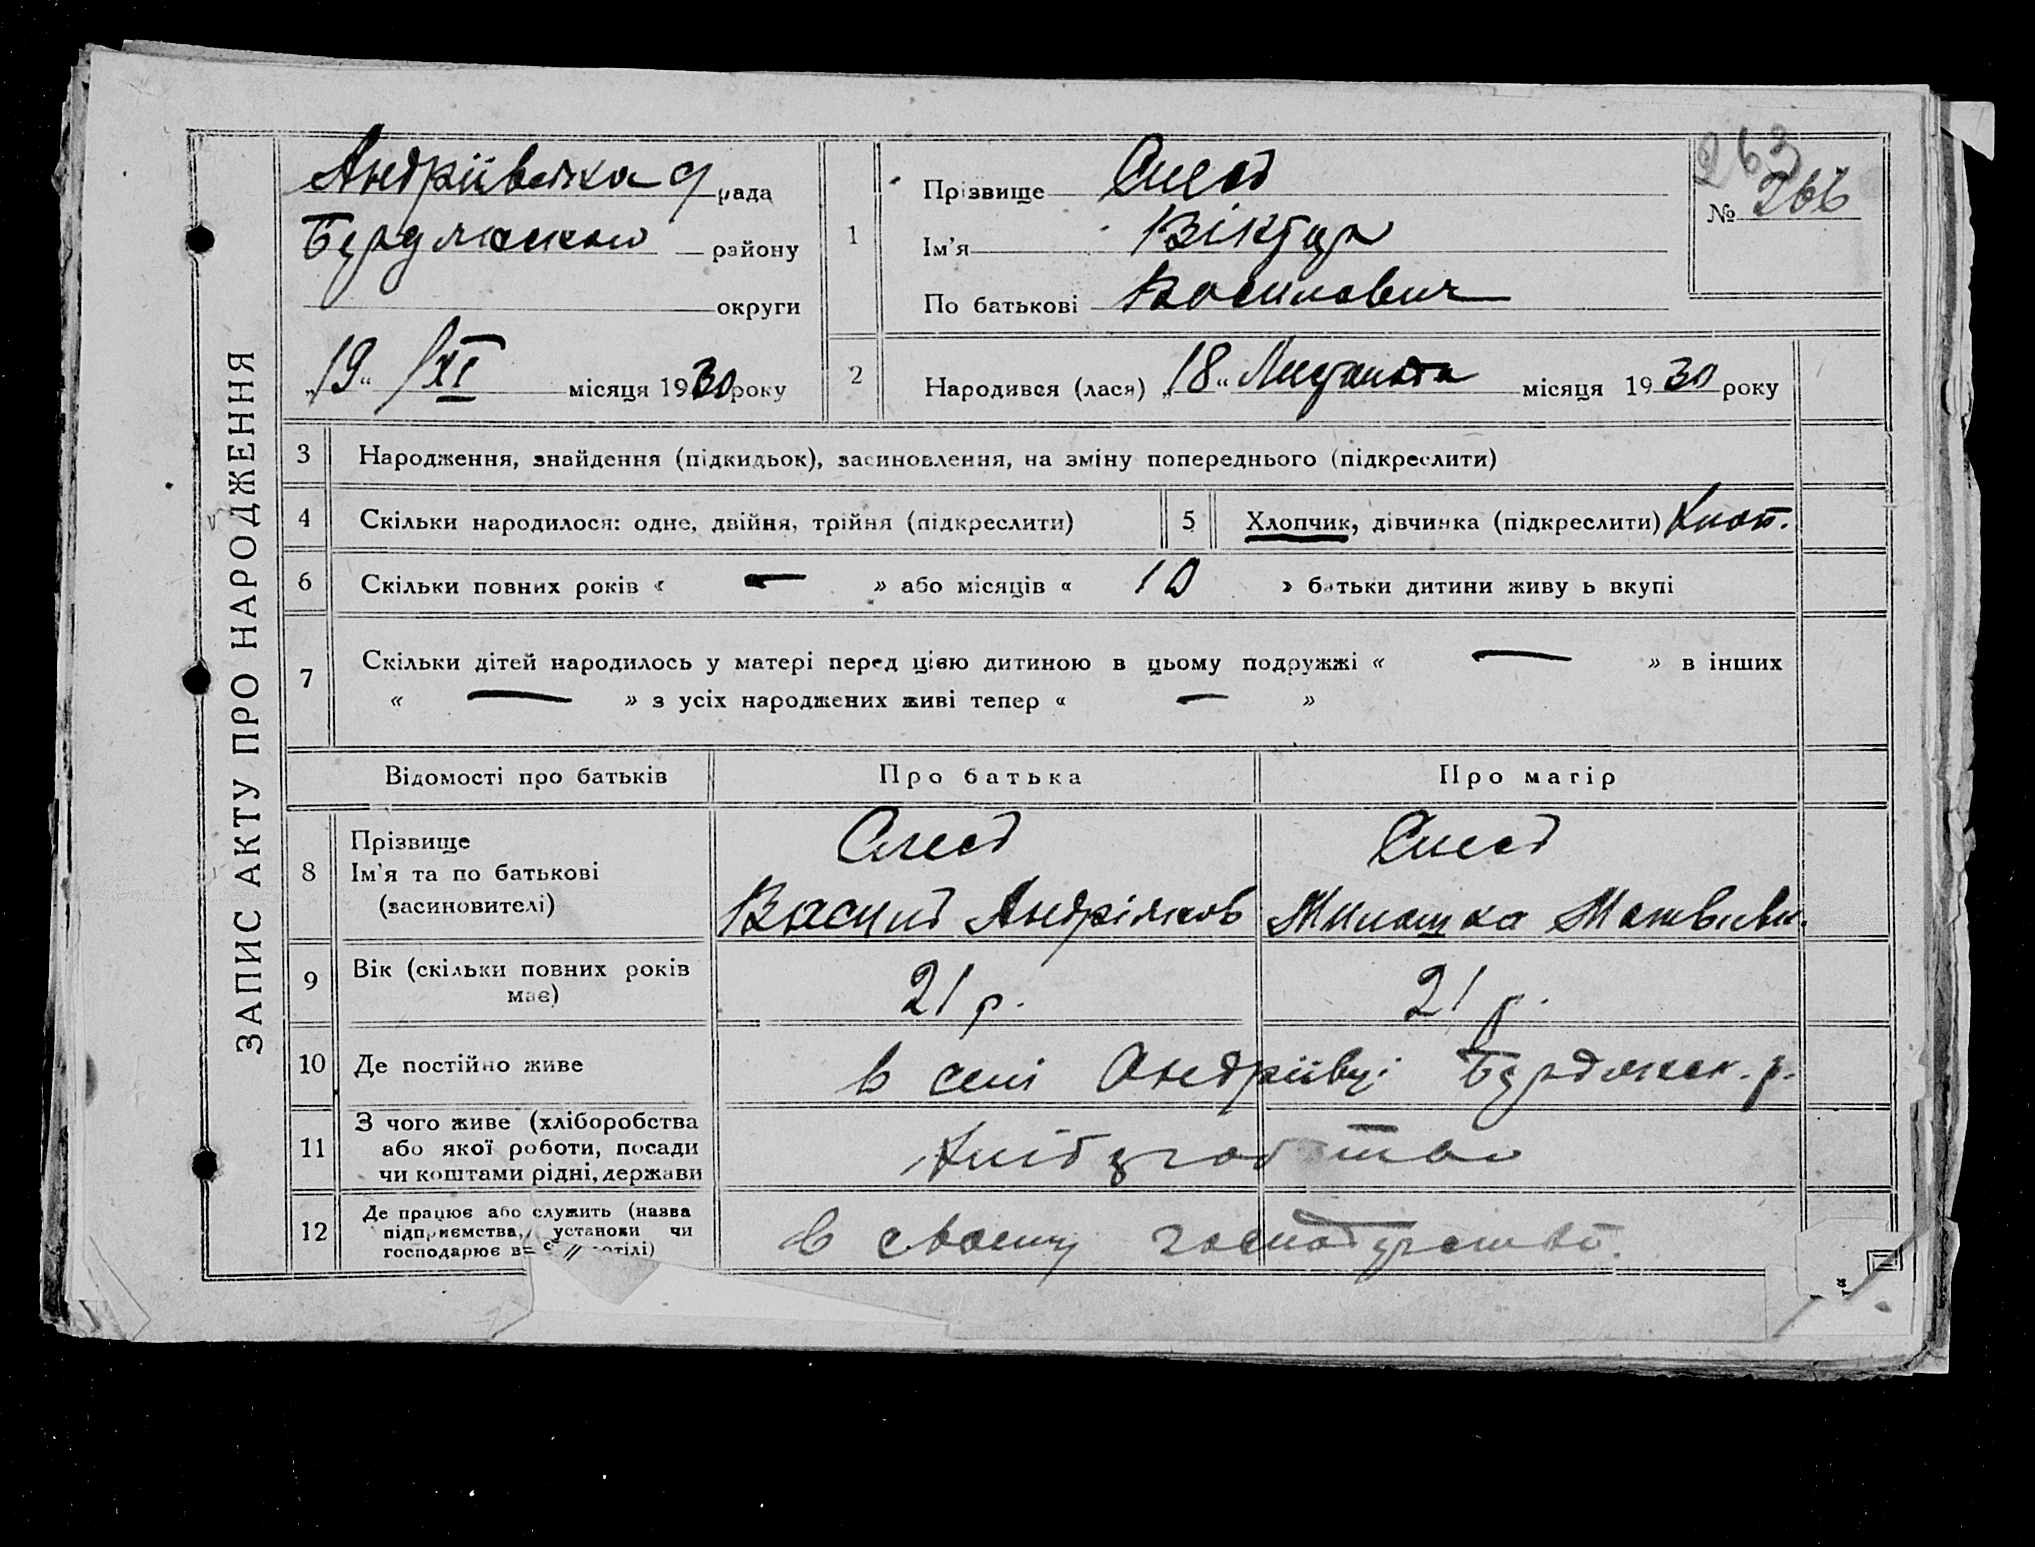 ЗАПИС АКТУ ПРО НАРОДЖЕННЯ
Андріївська с/рада
Бердянського району
округи
„19“ /XI місяця 1930 року
1
Прізвище
Ім'я Віктор
По батькові Васильович
263
№ 266
2
Народився (лася) „18“ Листопада місяця 1930 року
3 Народження, знайдення (підкидьок), засиновлення, на зміну попереднього (підкреслити)
4 Скільки народилося: одне, двійня, трійня (підкреслити)
5 Хлопчик, дівчинка (підкреслити) Хлоп.
6 Скільки повних років « — » або місяців « 10 » батьки дитини живуть вкупі
7 Скільки дітей народилось у матері перед цією дитиною в цьому подружжі « — » в інших
« — » з усіх народжених живі тепер « — »
Відомості про батьків
Про батька
Про матір
8 Прізвище
Ім'я та по батькові
(засиновителі)
Андріяков
9 Вік (скільки повних років
має)
21 р.
21 р.
10 Де постійно живе
в селі Андріївці Бердянськ. р.
11 З чого живе (хліборобства
або якої роботи, посади
чи коштами рідні, держави
12 Де працює або служить (назва
підприємства, установи чи
господарює в
в своему господарстві.